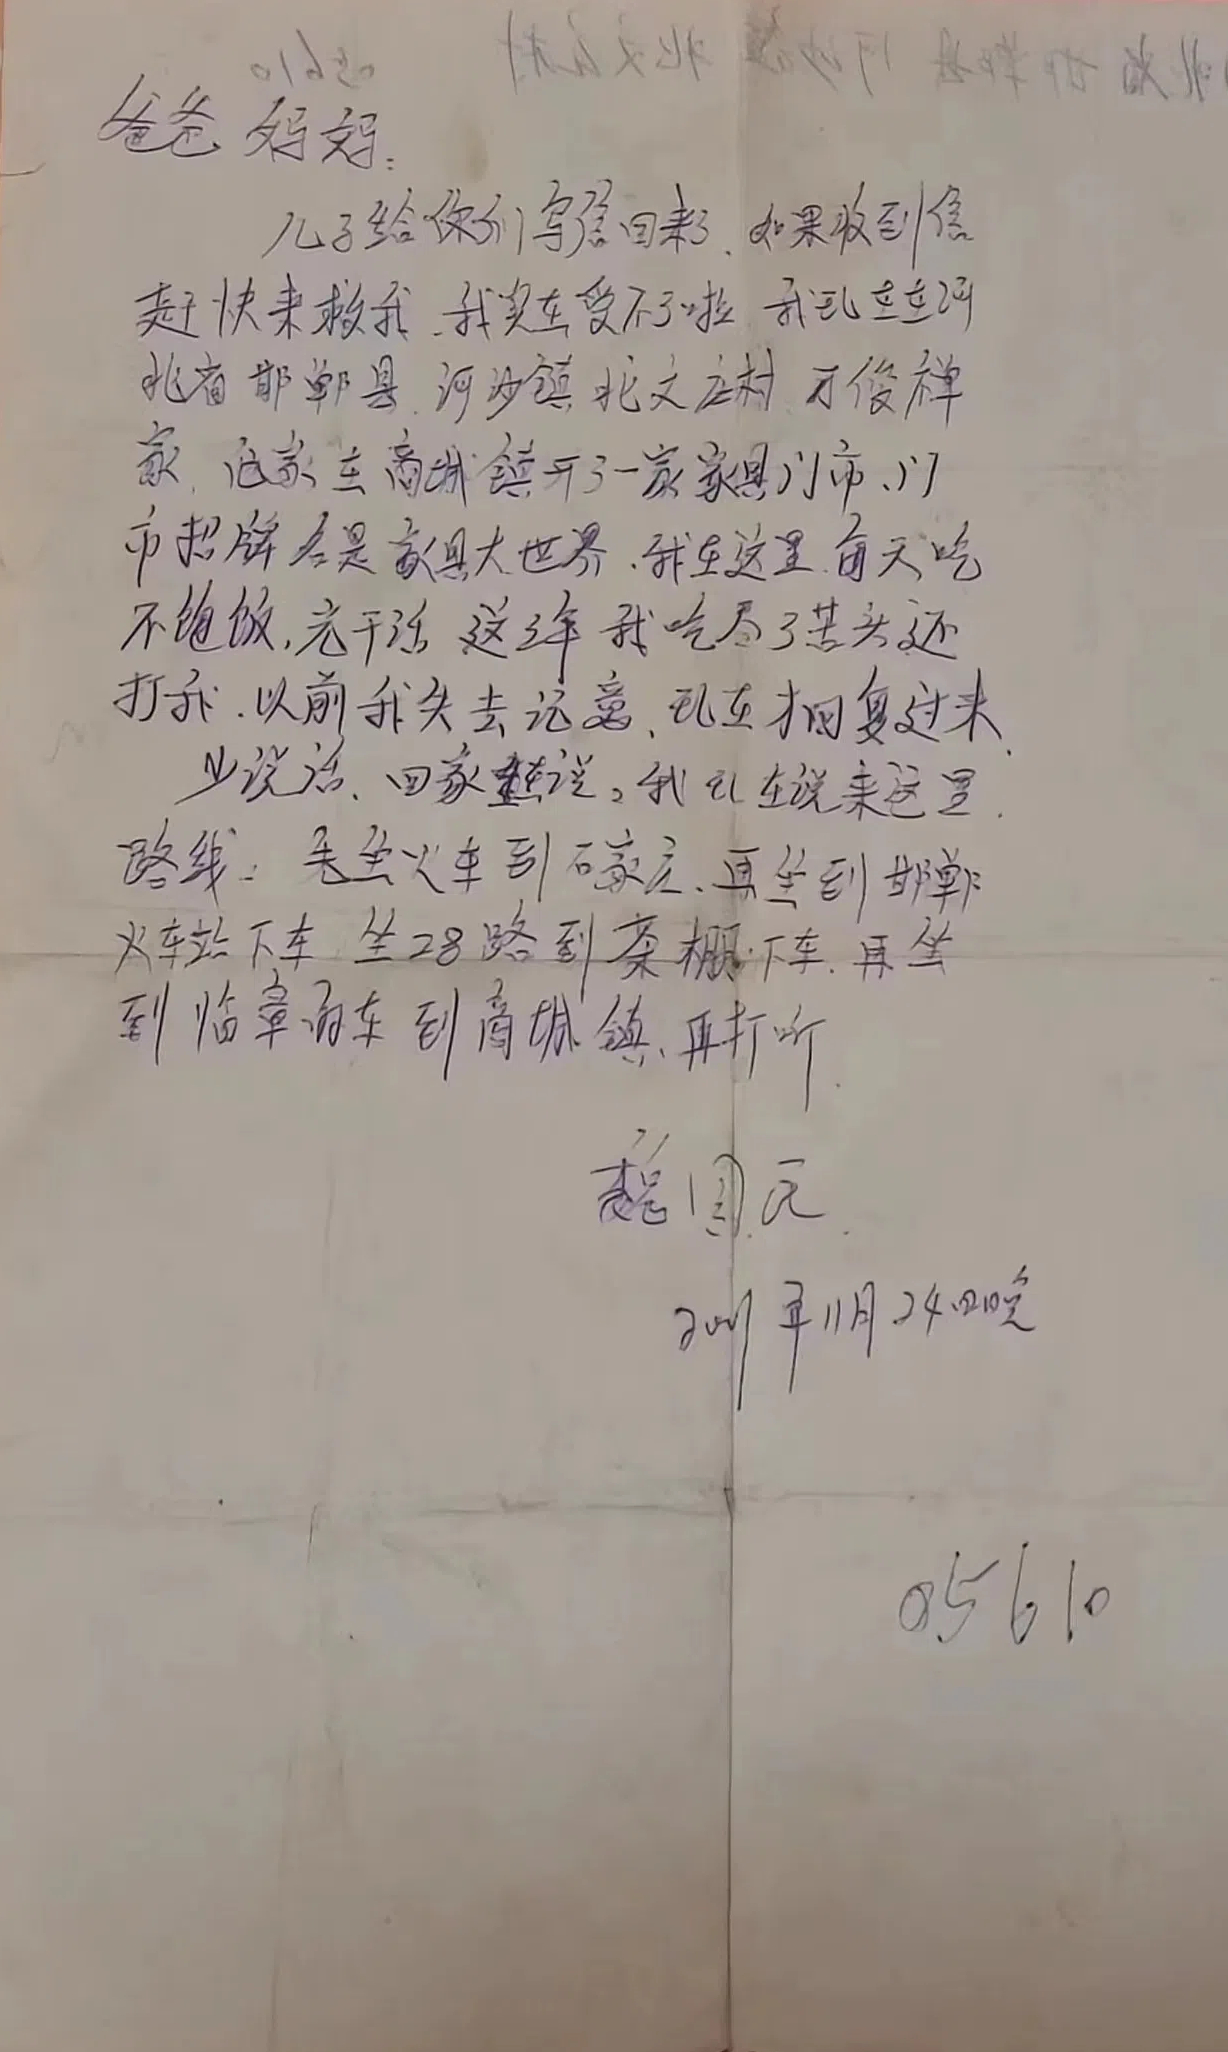 爸爸妈妈:
儿子给你们写信回来了.如果收到信
赶快来救我.我实在受不了啦 我现在在河
北省邯郸县.河沙镇北文庄村 俊祥
家.他家在商城镇开了一家家具门市、门
市招牌名是家具大世界.我在这里.每天吃
不饱饭,光干活 这3年我吃尽了苦头还
打我.以前我失去记意、现在才回复过来.
少说话、回家在说。我现在说来这里.
路线:先坐火车到石家庄、再坐到邯郸
火车站下车 坐28路到茶棚下车.再坐
到临章的车到商城镇、再打听.
魏国元.
年11月24日晚
05610